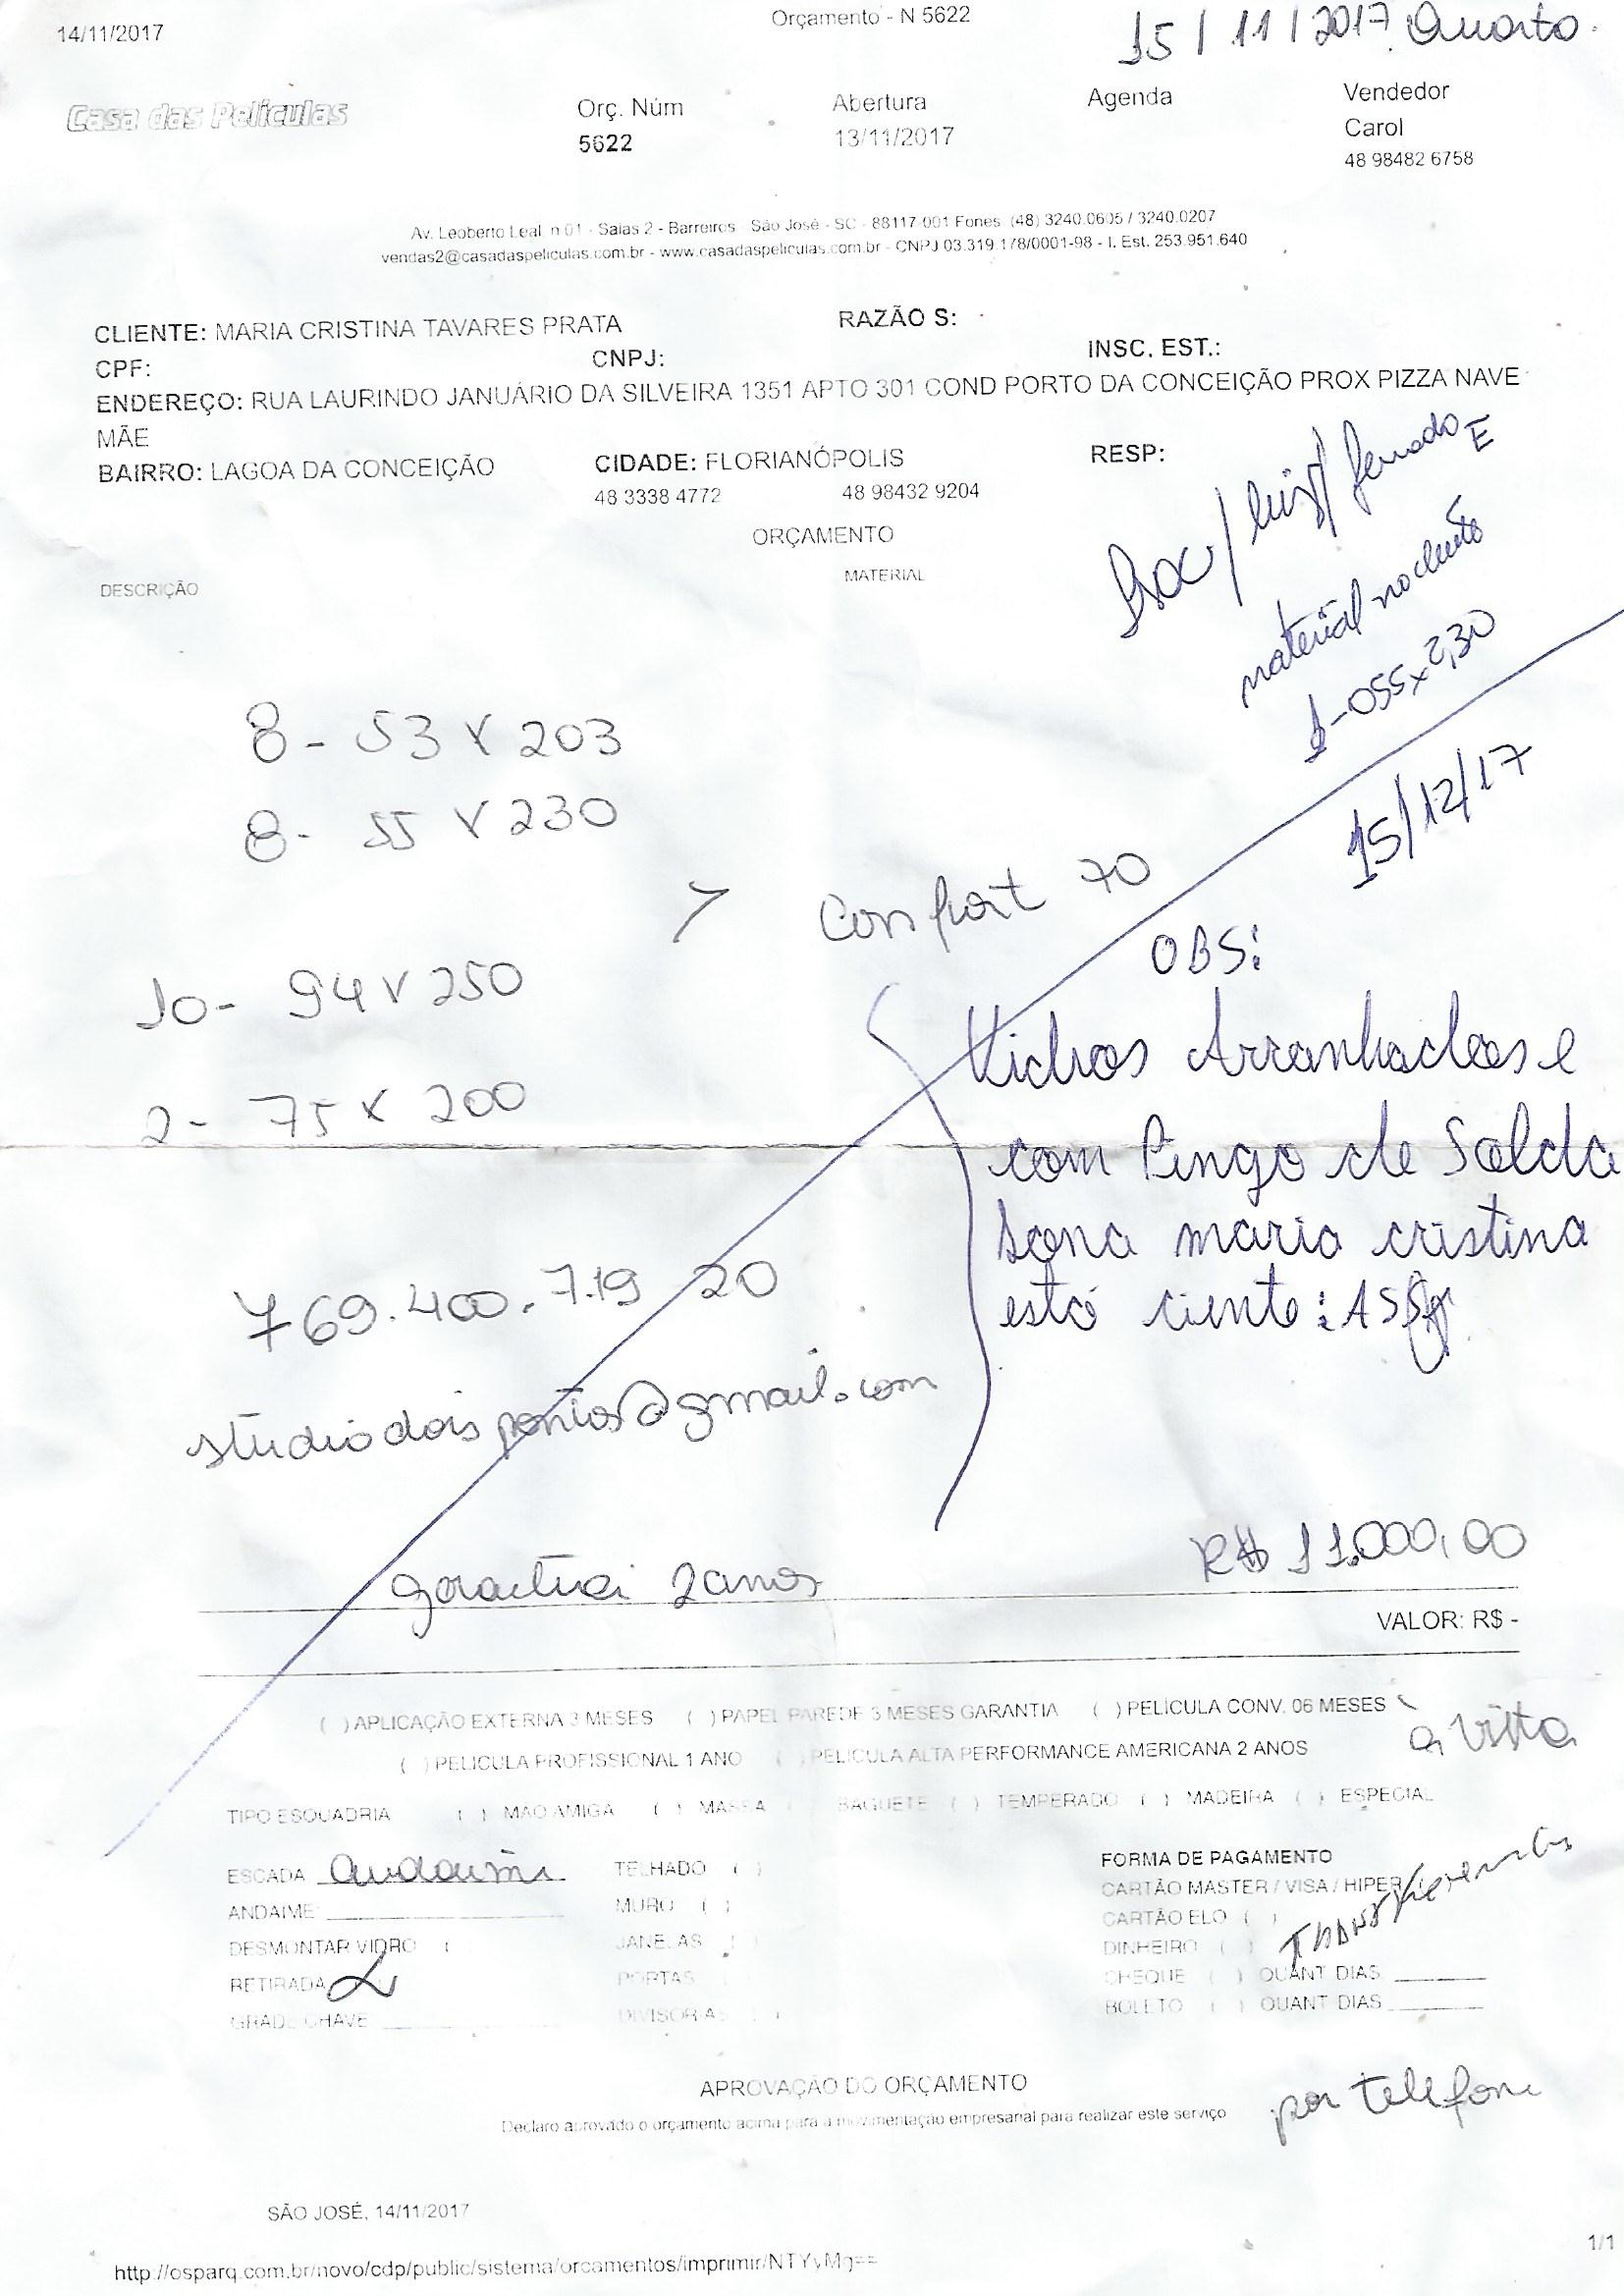 14/11/2017
Orçamento - N 5622
15/11/2017 Quarta.
Casa das Películas
Orç. Núm
5622
Abertura
13/11/2017
Agenda
Vendedor
Carol
48 98482 6758
Av. Leoberto Leal n 01 - Salas 2 - Barreiros São José - SC - 88117-001 Fones (48) 3240.0605 / 3240.0207
vendas2@casadaspeliculas.com.br - www.casadaspeliculas.com.br - CNPJ 03.319.178/0001-98 - I. Est. 253.951.640
CLIENTE: MARIA CRISTINA TAVARES PRATA
RAZÃO S:
CPF:
CNPJ:
INSC. EST.:
ENDEREÇO: RUA LAURINDO JANUÁRIO DA SILVEIRA 1351 APTO 301 COND PORTO DA CONCEIÇÃO PROX PIZZA NAVE
MÃE
BAIRRO: LAGOA DA CONCEIÇÃO
CIDADE: FLORIANÓPOLIS
RESP:
48 3338 4772
48 98432 9204
ORÇAMENTO
DESCRIÇÃO
MATERIAL
luiz/
E
material no
1-055x2,30
15/12/17
8 - 53 x 203
8 - 55 x 230
> Confort 70
10 - 94 x 250
2 - 75 x 200
OBS:
Vidros Arranhados e
com Pingo de Solda
Dona maria cristina
está ciente: ASS
769.400.719 20
studiodoispontos@gmail.com
R$ 11.000,00
2 anos
VALOR: R$ -
( ) APLICAÇÃO EXTERNA 3 MESES ( ) PAPEL PAREDE 3 MESES GARANTIA ( ) PELÍCULA CONV. 06 MESES
a vista
( ) PELICULA PROFISSIONAL 1 ANO ( ) PELICULA ALTA PERFORMANCE AMERICANA 2 ANOS
TIPO ESQUADRIA ( ) MAO AMIGA ( ) MASSA ( ) BAGUETE ( ) TEMPERADO ( ) MADEIRA ( ) ESPECIAL
ESCADA
TELHADO ( )
ANDAIME
MURO ( )
DESMONTAR VIDRO (
JANELAS ( )
RETIRADA
PORTAS
GRADE CHAVE
DIVISORIAS
FORMA DE PAGAMENTO
CARTÃO MASTER / VISA / HIPER
CARTÃO ELO ( )
DINHEIRO ( )
CHEQUE ( ) QUANT DIAS
BOLETO ( ) QUANT DIAS
APROVAÇÃO DO ORÇAMENTO
Declaro aprovado o orçamento acima para a movimentação empresarial para realizar este serviço
por telefone
SÃO JOSÉ, 14/11/2017
1/1
http://osparq.com.br/novo/cdp/public/sistema/orcamentos/imprimir/NTYyMg==